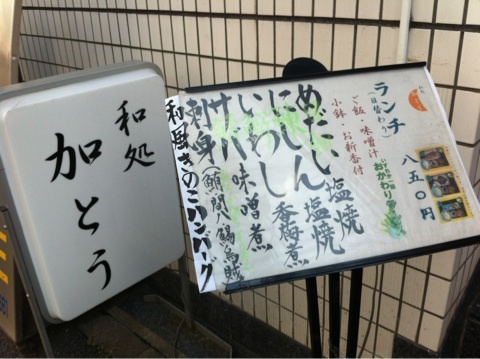 和処
加とう
ランチ
(日替わり)
八五〇円
ご飯・味噌汁
おかわり
小鉢・お新香付
めだい 塩焼
にしん 塩焼
いわし 香梅煮
サバ 味噌煮
刺身
和風きのこハンバーグ